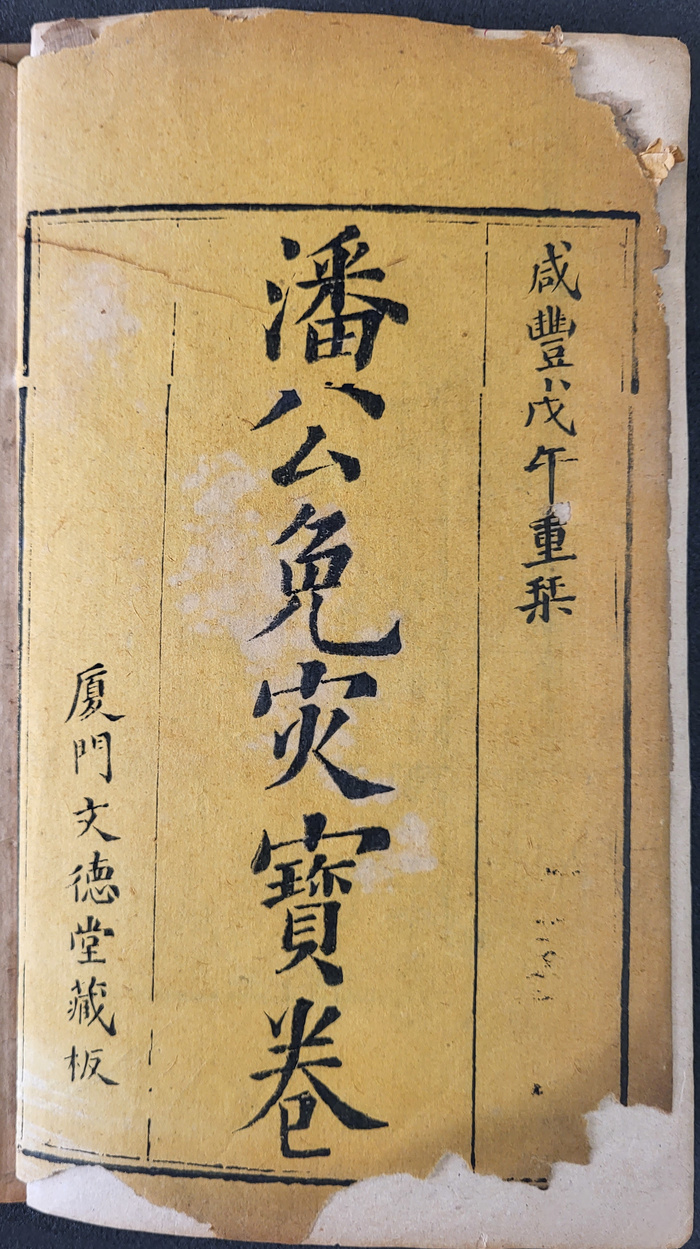 咸豐戊午重棃
潘公免灾寶卷
厦門文德堂藏板